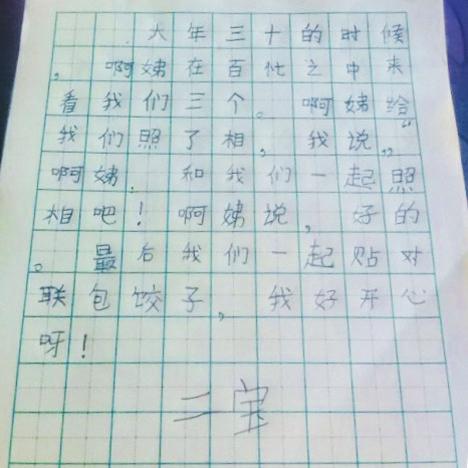 大年三十的时候
，啊姨在百忙之中来
看我们三个。啊姨给
我们照了相，我说，“
啊姨，和我们一起照
相吧！啊姨说，好的
。最后我们一起贴对
联包饺子，我好开心
呀！
二宝